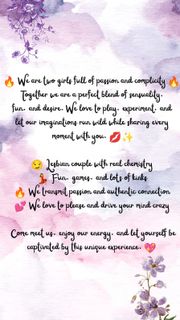 🔥 We are two girls full of passion and complicity 🔥
Together we are a perfect blend of sensuality,
fun, and desire. We love to play, experiment, and
let our imaginations run wild while sharing every
moment with you. 💋✨
😏 Lesbian couple with real chemistry
💃 Fun, games, and lots of kinks
🔥 We transmit passion and authentic connection
💞 We love to please and drive your mind crazy
Come meet us, enjoy our energy, and let yourself be
captivated by this unique experience. 💖